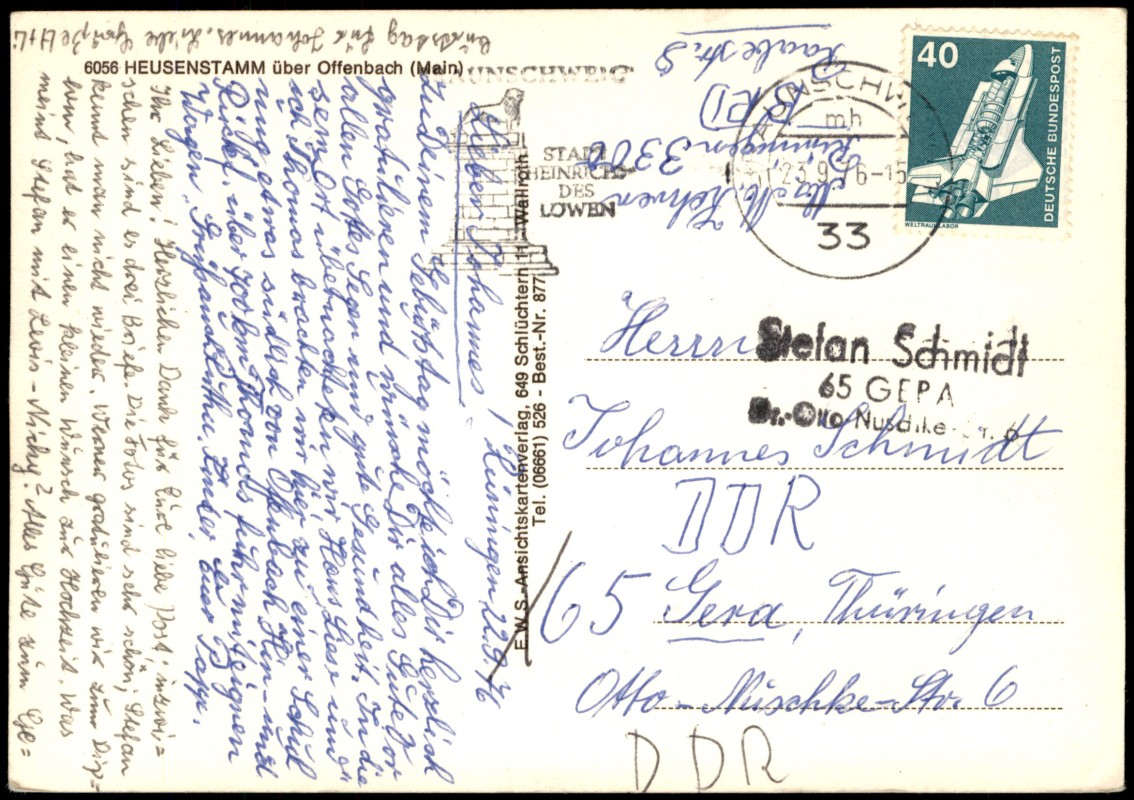 6056 HEUSENSTAMM über Offenbach (Main)
E.W.S.-Ansichtskartenverlag, 649 Schlüchtern 11 - Wallroth
Tel. (06661) 526 - Best.-Nr. 877
BRAUNSCHWEIG
STADT
HEINRICHS
DES
LÖWEN
BRAUNSCHWEIG
mh
23.9.76-15
33
40
DEUTSCHE BUNDESPOST
WELTRAUMLABOR
3302
BRD
Stefan Schmidt
65 GERA
Dr.-Otto-Nuschke-Str. 6
Herrn
Johannes Schmidt
DDR
65 Gera, Thüringen
Otto-Nuschke-Str. 6
DDR
22.9.76
Lieber Johannes!
Zu Deinem Geburtstag möchte ich Dir herzlich
gratulieren und wünsche Dir alles Gute vor
allem Gottes Segen und gute Gesundheit. In die
sem Ort übernachteten wir, Hans Lieser und
ich. Thomas brachten wir hier zu einer Schul
ung etwas südlich von Offenbach. Hin- und
Rückf. über 700 km. Thomas fuhr mit eignen
Wagen. Grüß an Käthe, Kinder, Euer Papa.
Ihr Lieben! Herzlichen Dank für Eure liebe Post; inzwi=
schen sind es drei Briefe. Die Fotos sind sehr schön, Stefan
kennt man nicht wieder. Wenn gratulieren wir zum Dip=
lom, hat er einen kleinen Wunsch zur Hochzeit. Was
meint Stefan mit Levis - Nicky? Alles Gute zum Ge=
burtstag für Johannes. Liebe Grüße